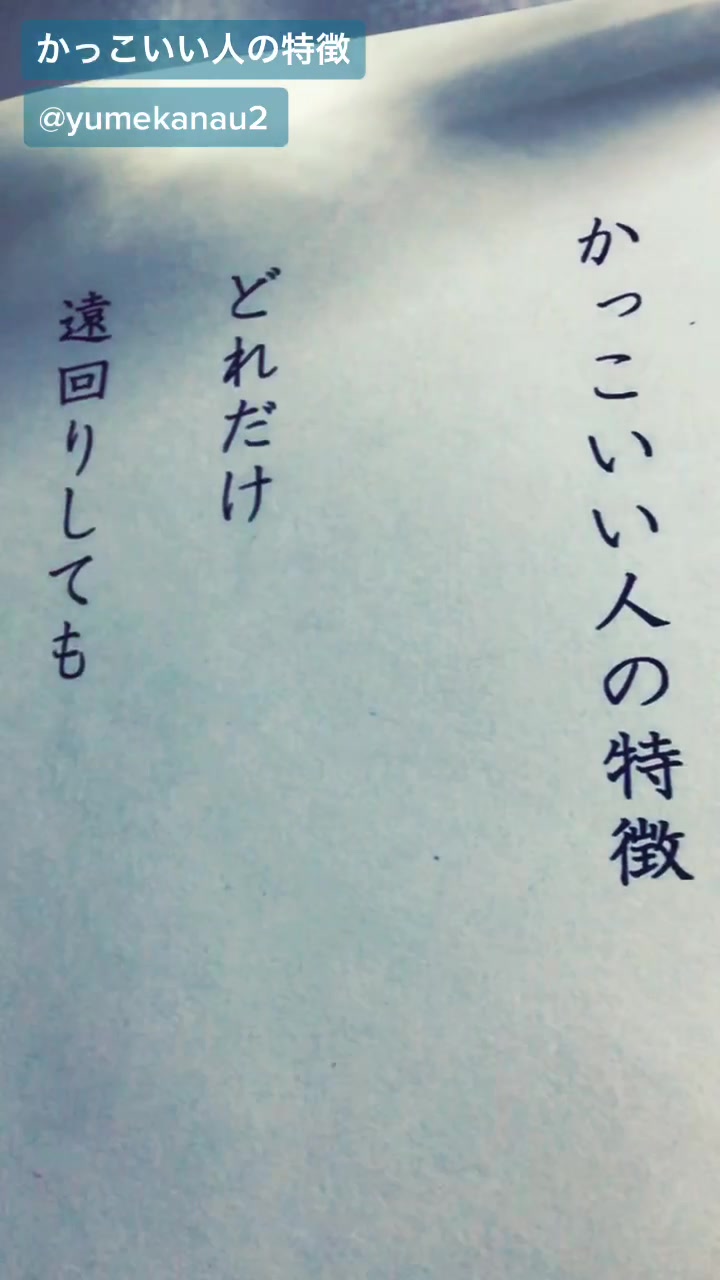 かっこいい人の特徴
@yumekanau2
かっこいい人の特徴
どれだけ
遠回りしても